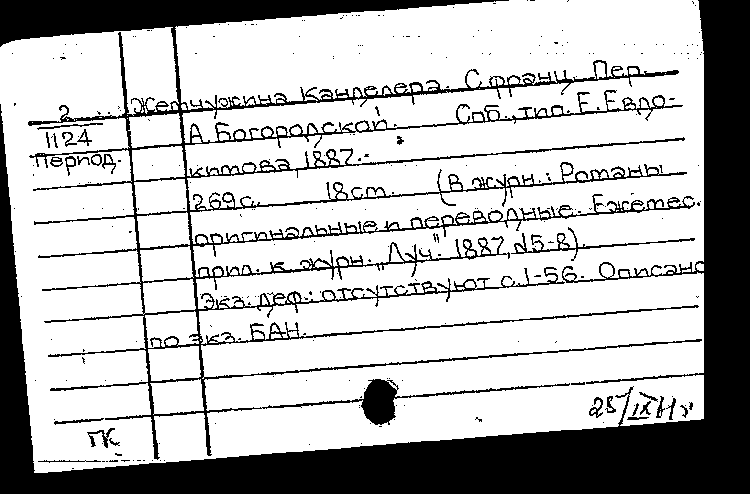 2 Жемчужина Канделера. С франц. Пер.
1124 А. Богородской. Спб., тип. Е. Евдо-
Период. кимова, 1887.-
269 с. 18 cm. (В журн.: Романы
оригинальные и переводные. Ежемес.
прил. к журн. „Луч". 1887, №5-8).
Экз. деф.: отсутствуют с. 1-56. Описано
по экз. БАН.
25/IX
ГК